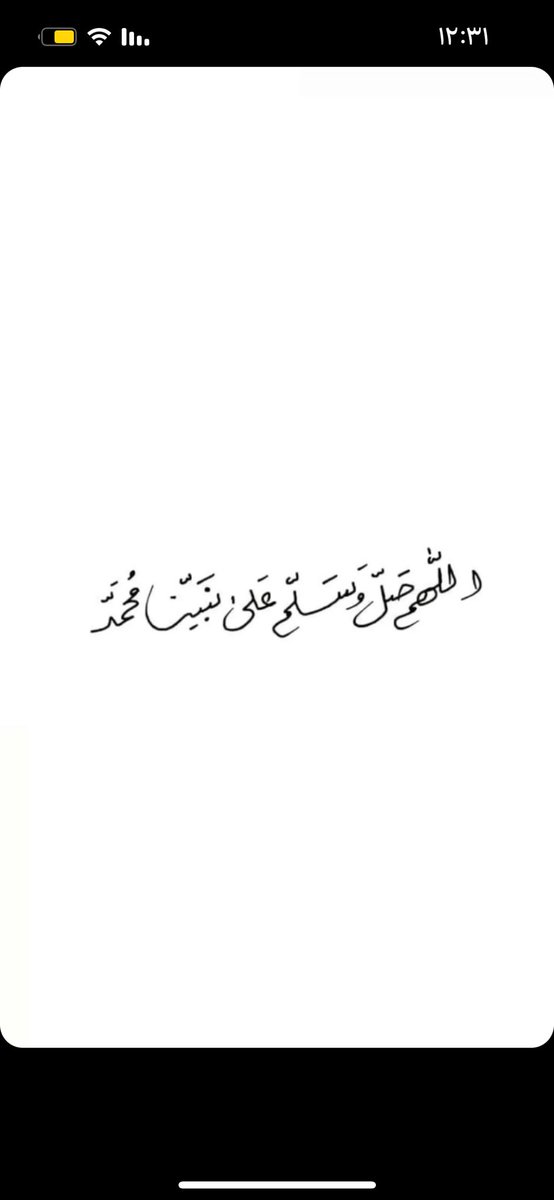 ١٢:٣١
اللَّهم صَلّ وَسَلّم عَلىٰ نبَيّنا مُحمَدَّ